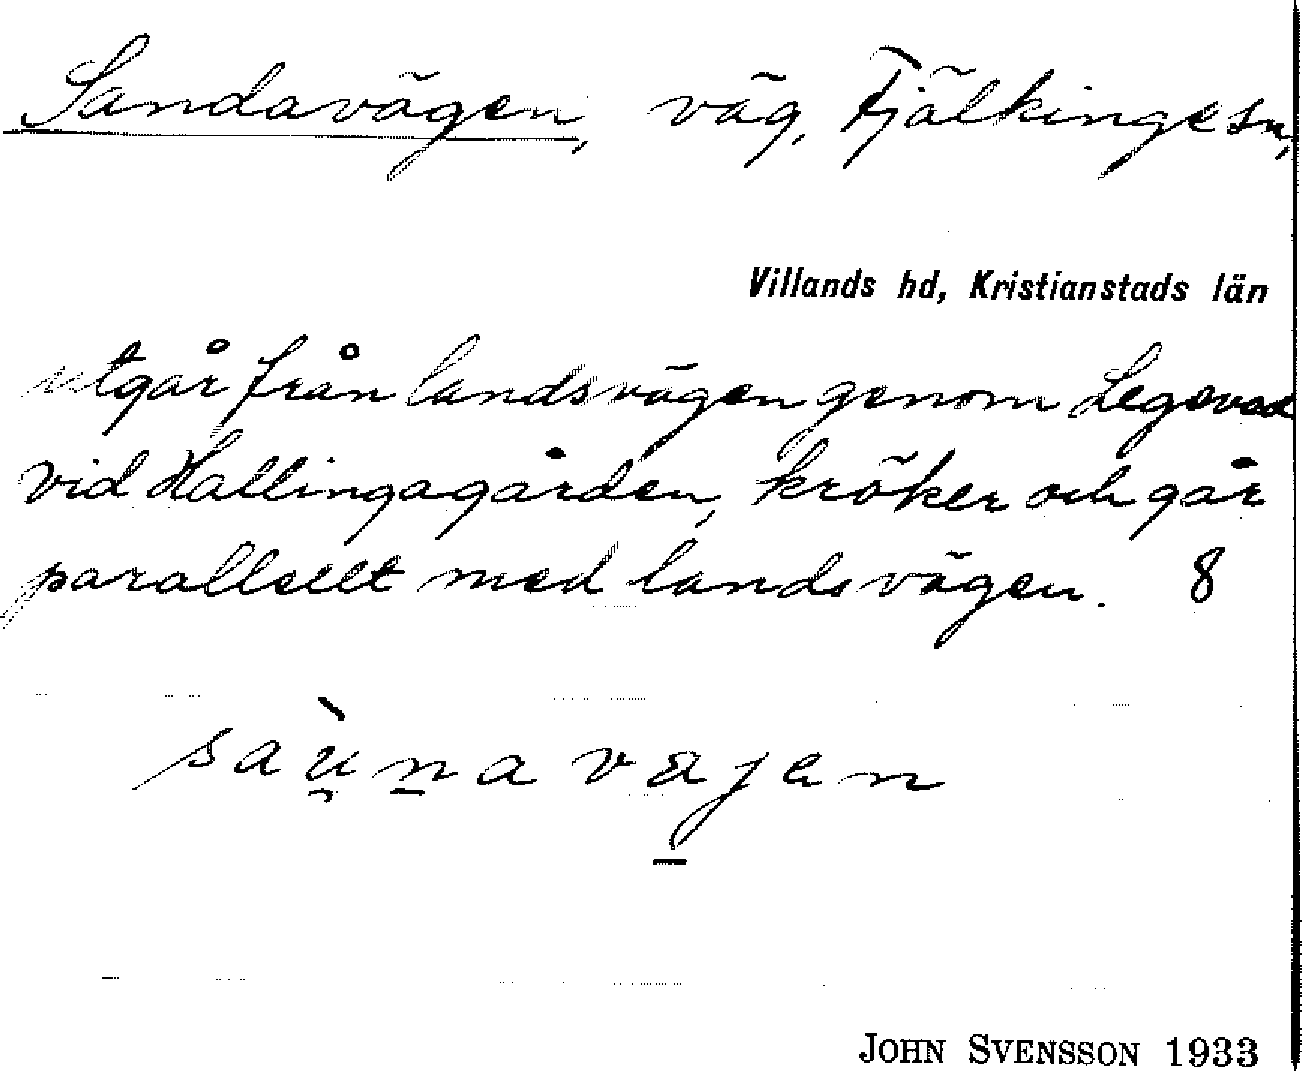 Sandavägen, väg, Fjälkinge sn,
Villands hd, Kristianstads län
utgår från landsvägen genom Legevad
vid Hallingagården, kröker och går
parallellt med landsvägen. 8
sàu̯navajen
JOHN SVENSSON 1933